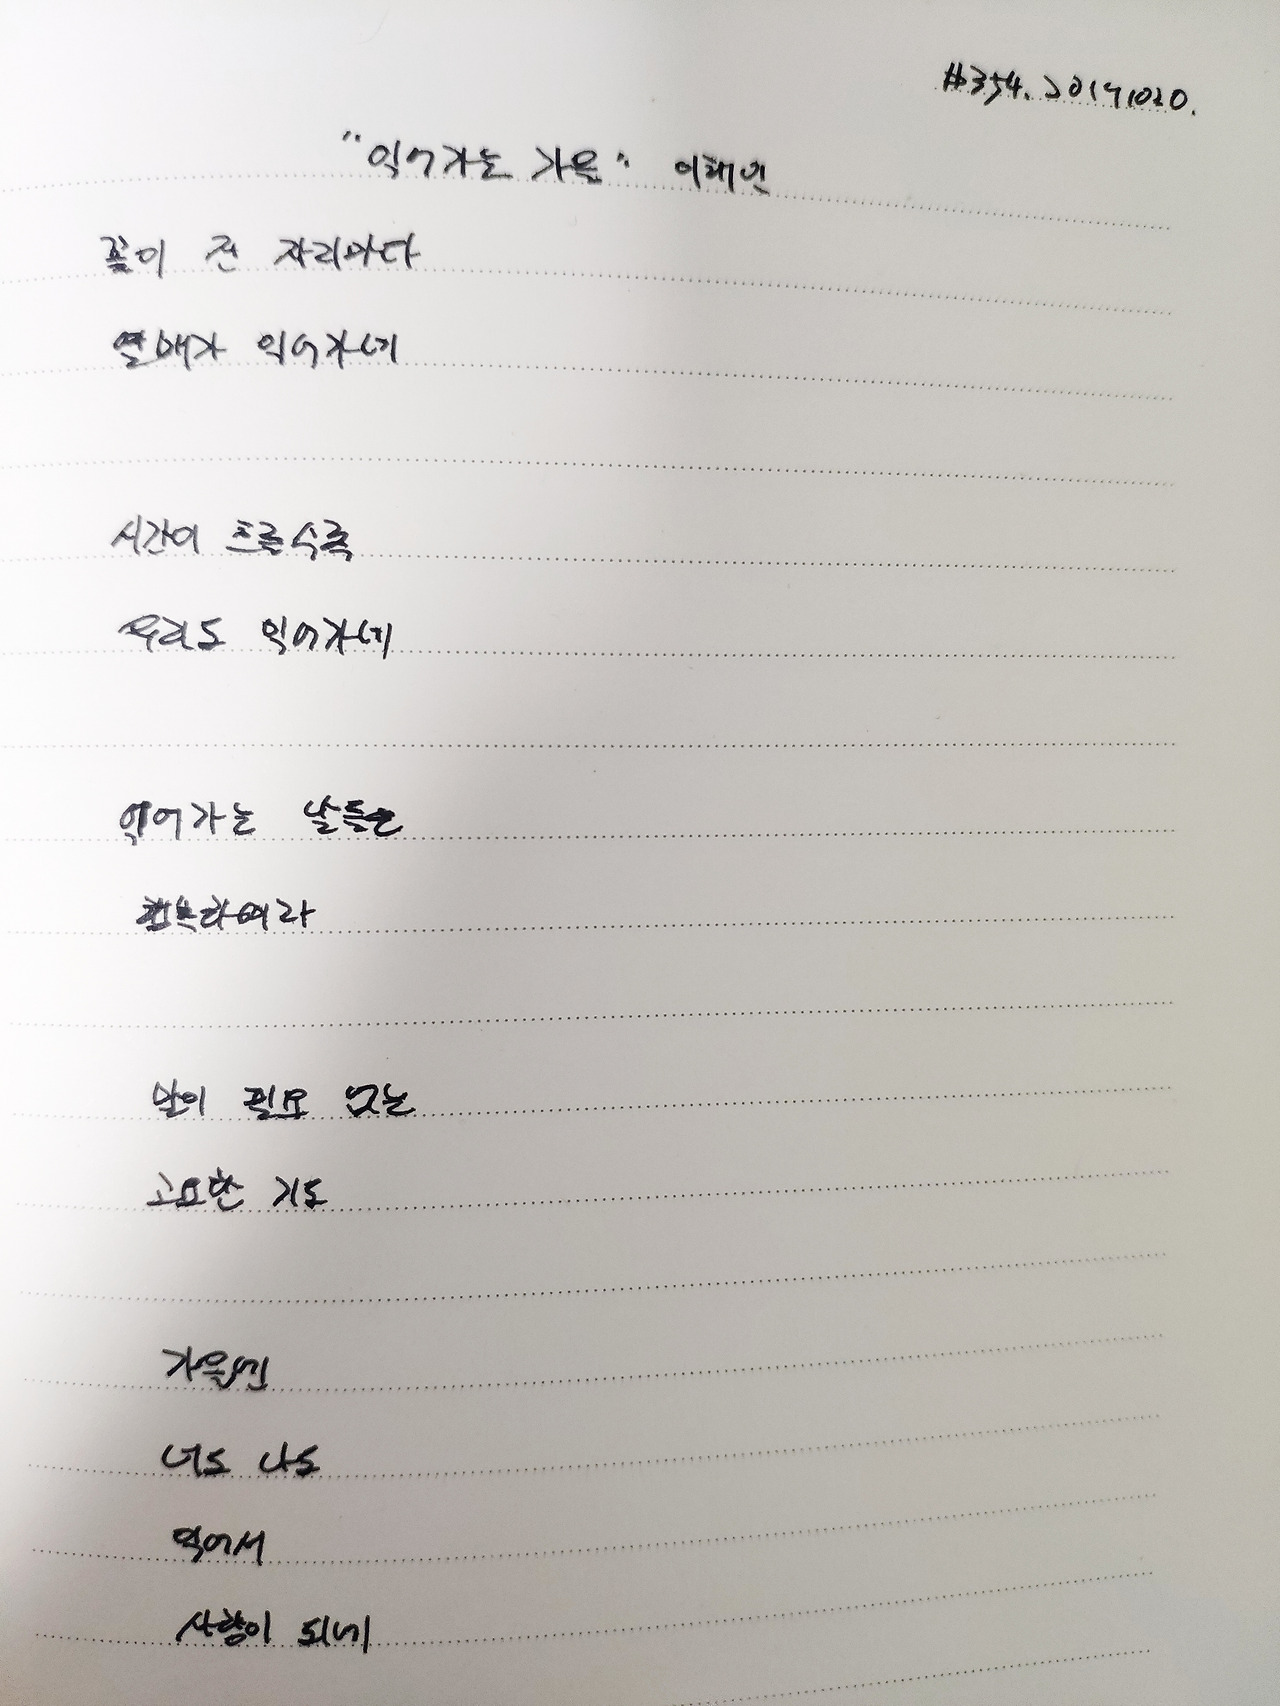 #354. 20191020.
"익어가는 가을" 이해인
꽃이 진 자리마다
열매가 익어가네
시간이 흐를수록
우리도 익어가네
익어가는 날들은
행복하여라
말이 필요 없는
고요한 기도
가을엔
너도 나도
익어서
사랑이 되네